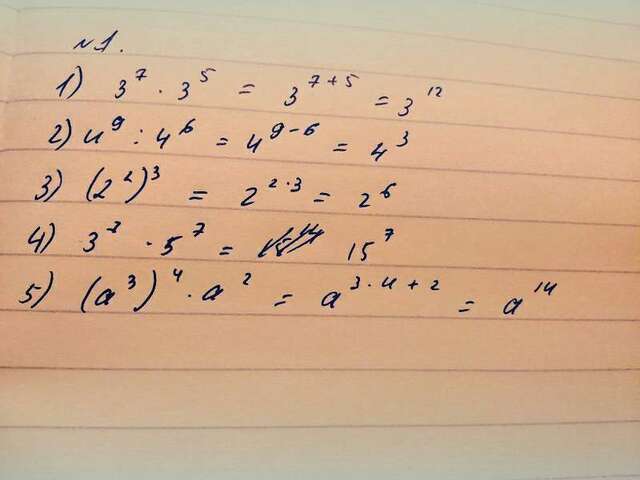 №1.
1) 3⁷ · 3⁵ = 3⁷⁺⁵ = 3¹²
2) 4⁹ : 4⁶ = 4⁹⁻⁶ = 4³
3) (2²)³ = 2²·³ = 2⁶
4) 3⁷ · 5⁷ = 15⁷
5) (a³)⁴ · a² = a³·⁴⁺² = a¹⁴